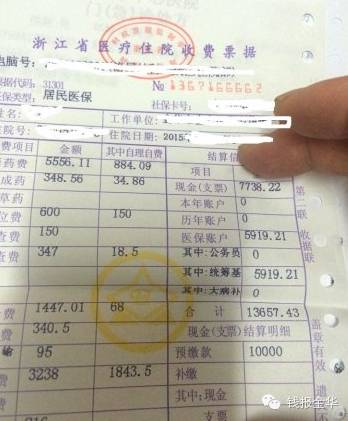 浙江省医疗住院收费票据
电脑号:
据代码: 31301 № 1367166662
保类型: 居民医保 社保卡号:
工作单位:
院号: 住院日期: 2015
费项目 金额 其中自理自费 结算信
药费 5556.11 884.09 项目
成药 348.56 34.86 现金(支票) 7738.22
草药 本年账户 0
位费 600 150 历年账户 0
查费 150 医保账户 5919.21
查费 347 18.5 其中:公务员 0
其中:统筹基 5919.21
其中:大病补 0
费 1447.01 68 合计 13657.43
费 340.5 现金(支票)结算明细
95 预缴款 10000
费 3238 1843.5 补缴
其中:现金
支票
第二联 收据联
盖章有效
钱报金华